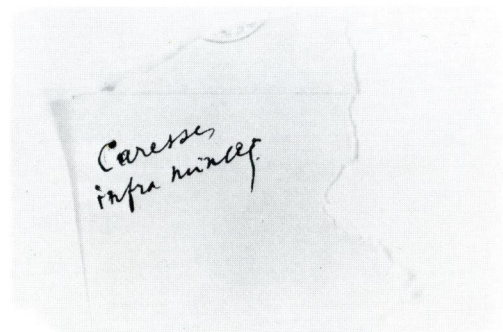 Caresses
infra minces.